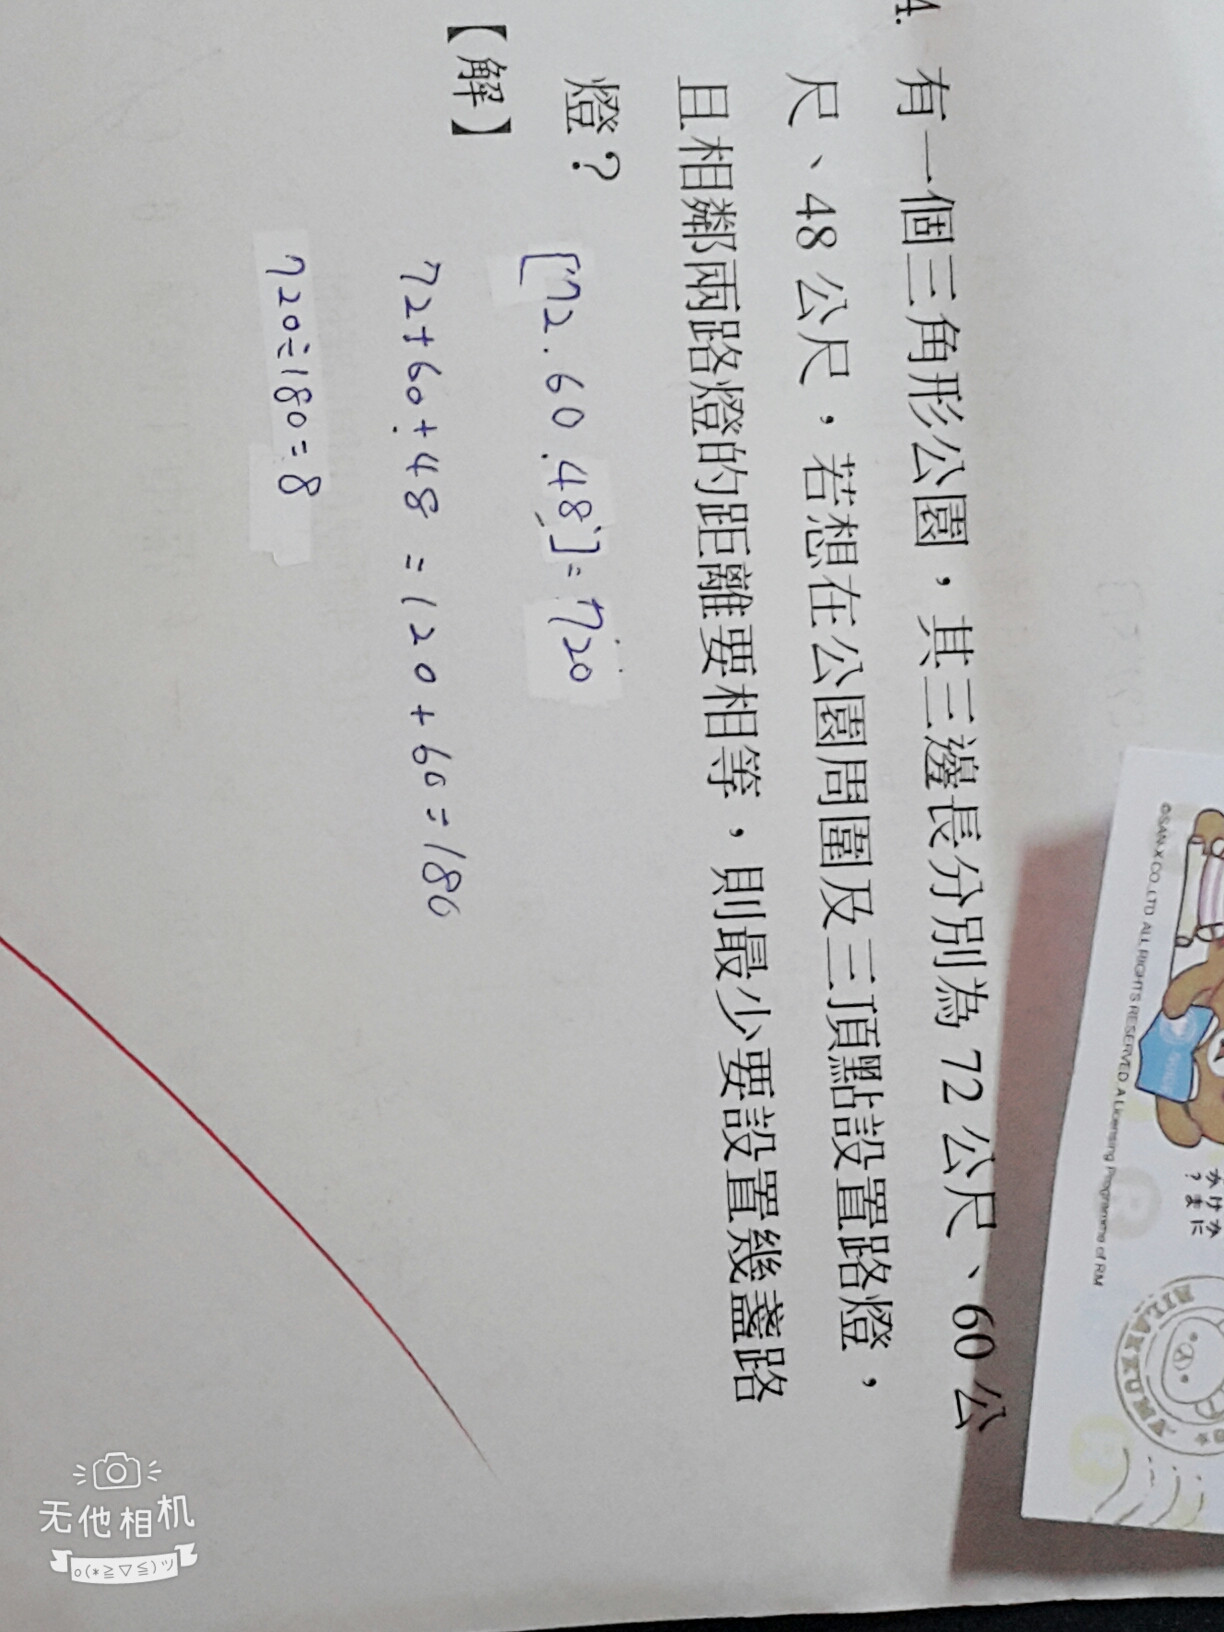 4. 有一個三角形公園，其三邊長分別為 72 公尺、60 公
尺、48 公尺，若想在公園周圍及三頂點設置路燈，
且相鄰兩路燈的距離要相等，則最少要設置幾盞路
燈？
【解】
[72.60.48]=720
72+60+48=120+60=180
720÷180=8
©SAN-X CO., LTD. ALL RIGHTS RESERVED. A Licensing Programme of RM
RILAKKUMA
无他相机
o(*≧▽≦)ツ